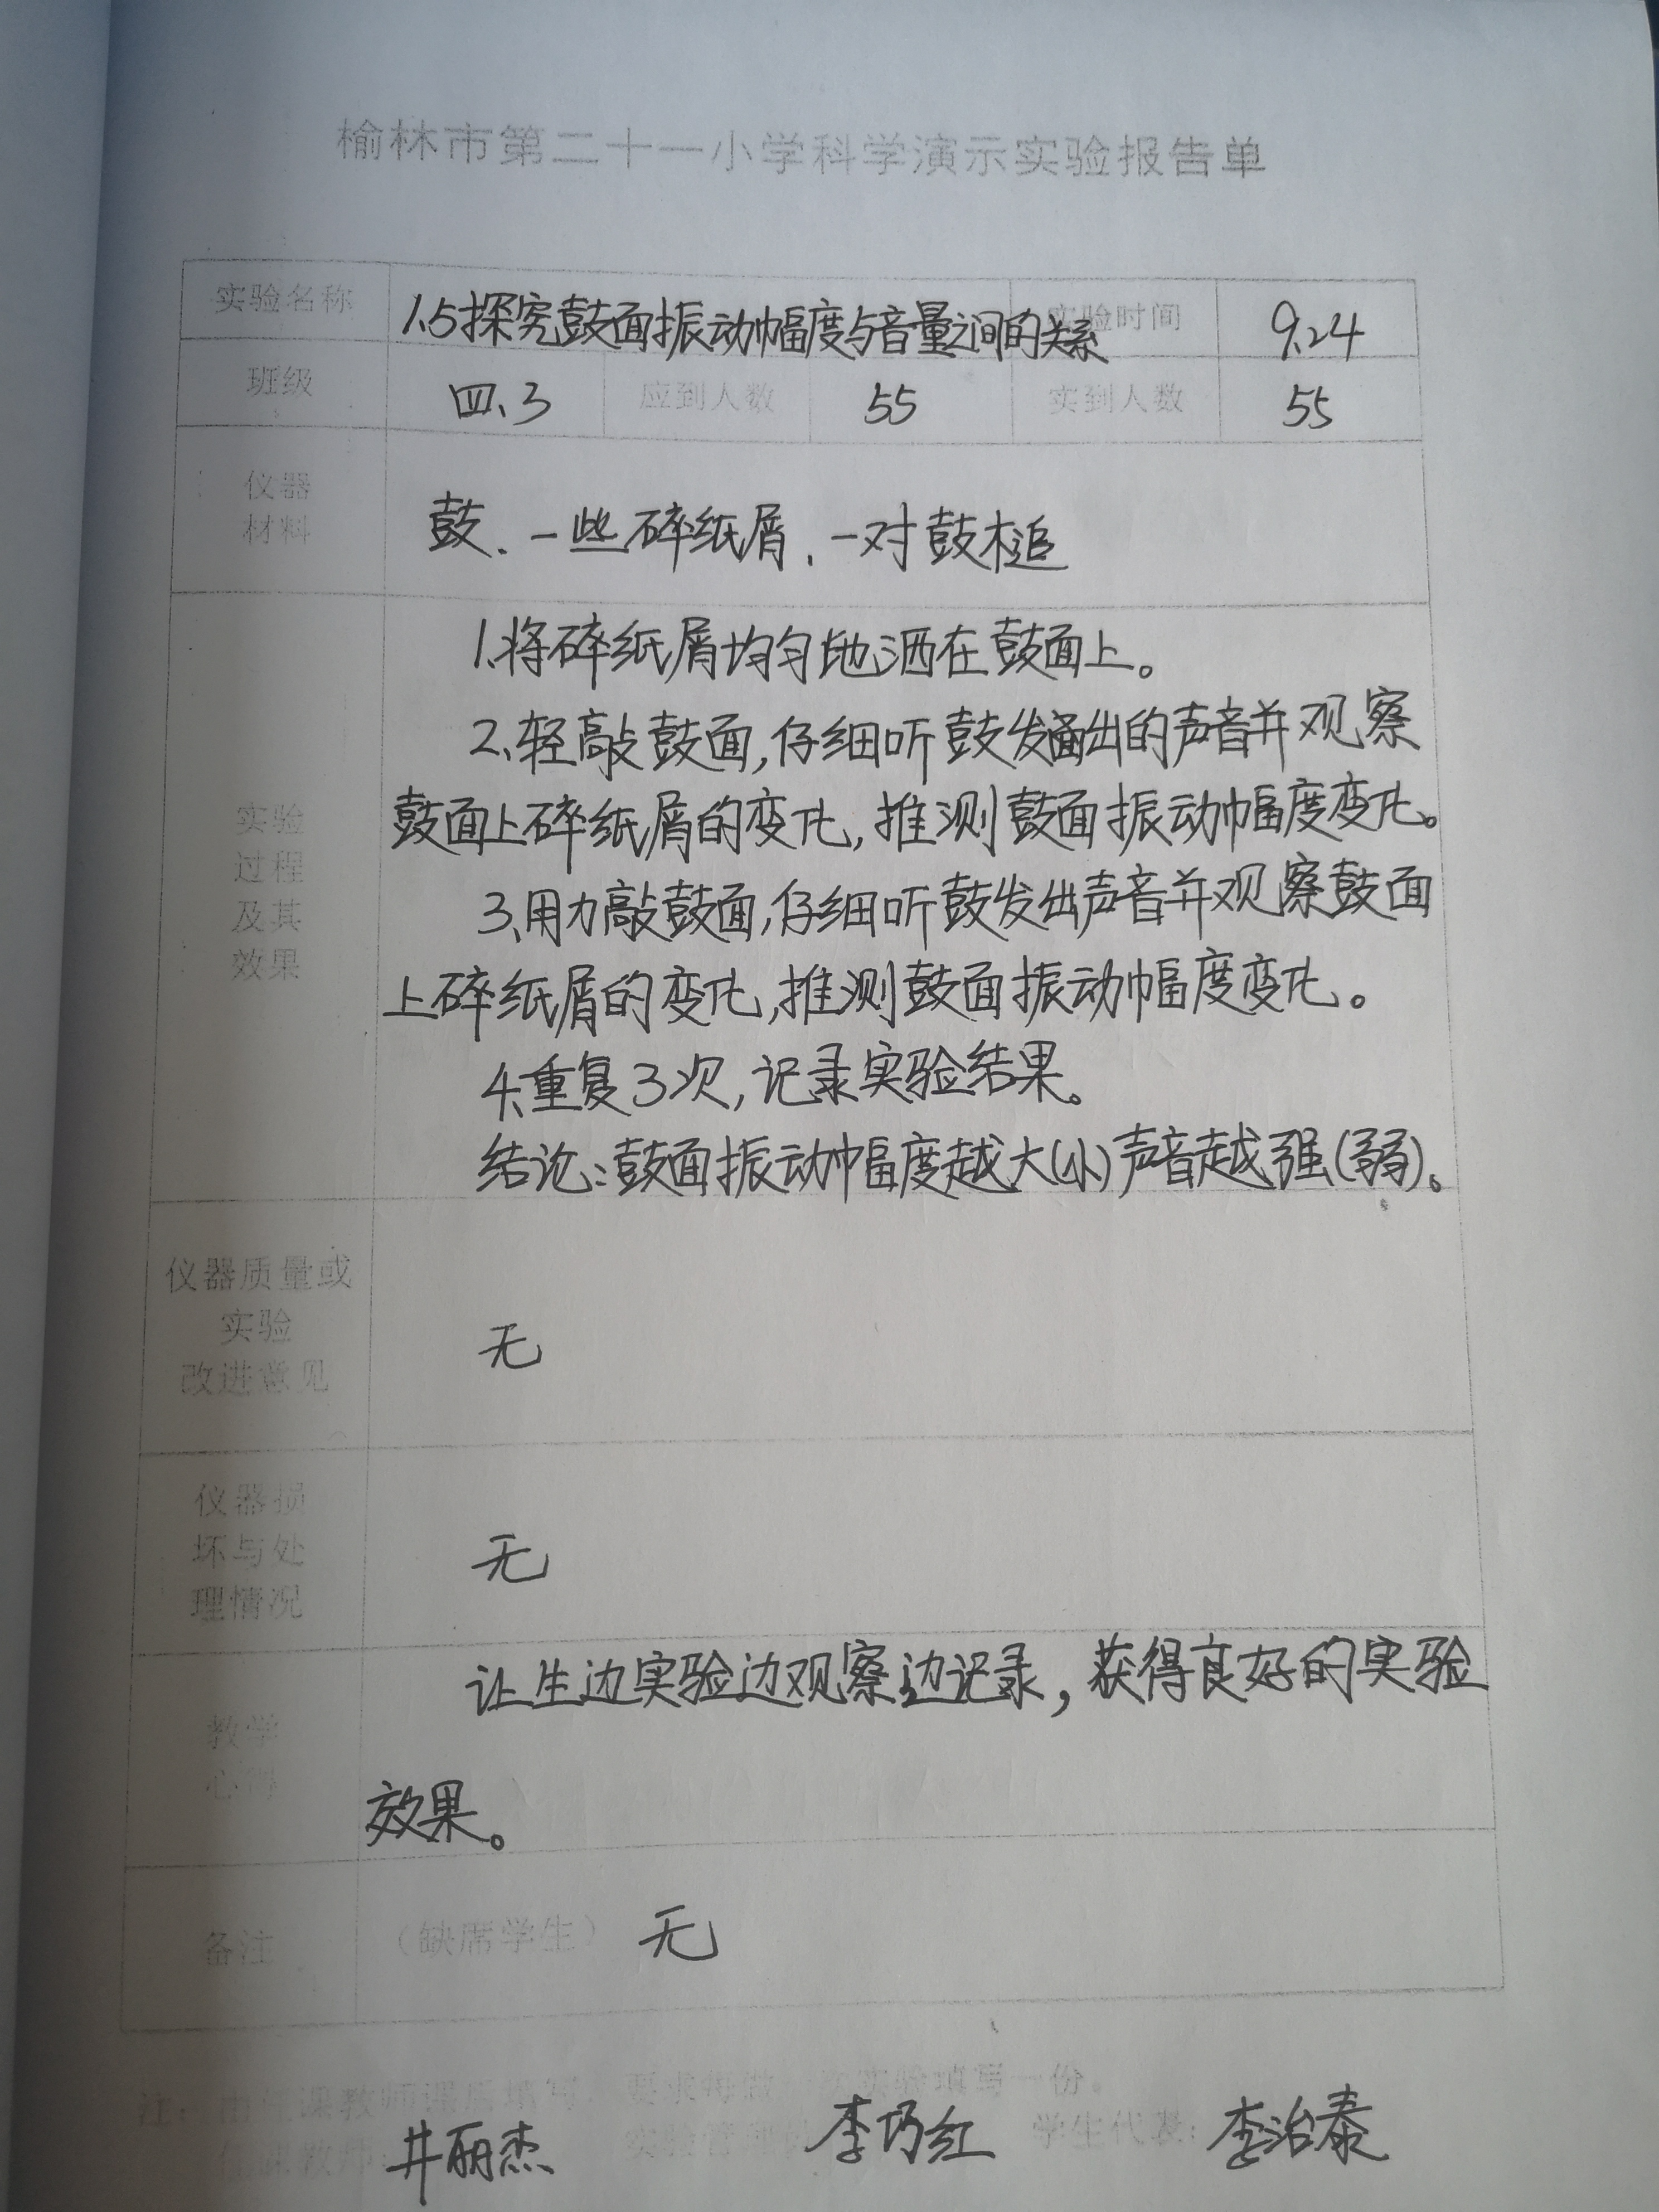 榆林市第二十一小学科学演示实验报告单
实验名称 1.5探究鼓面振动幅度与音量之间的关系 实验时间 9.24
班级 四.3 应到人数 55 实到人数 55
仪器
材料
鼓、一些碎纸屑、一对鼓槌
实验
过程
及其
效果
1.将碎纸屑均匀地洒在鼓面上。
2.轻敲鼓面,仔细听鼓发出的声音并观察
鼓面上碎纸屑的变化,推测鼓面振动幅度变化。
3.用力敲鼓面,仔细听鼓发出声音并观察鼓面
上碎纸屑的变化,推测鼓面振动幅度变化。
4.重复3次,记录实验结果。
结论:鼓面振动幅度越大(小)声音越强(弱)。
仪器质量或
实验
改进意见
无
仪器损
坏与处
理情况
无
教学
心得
让生边实验边观察边记录,获得良好的实验
效果。
备注 (缺席学生) 无
注:由任课教师课后填写,要求每做一次实验填写一份。
任课教师: 井丽杰 李巧红 学生代表: 李治泰